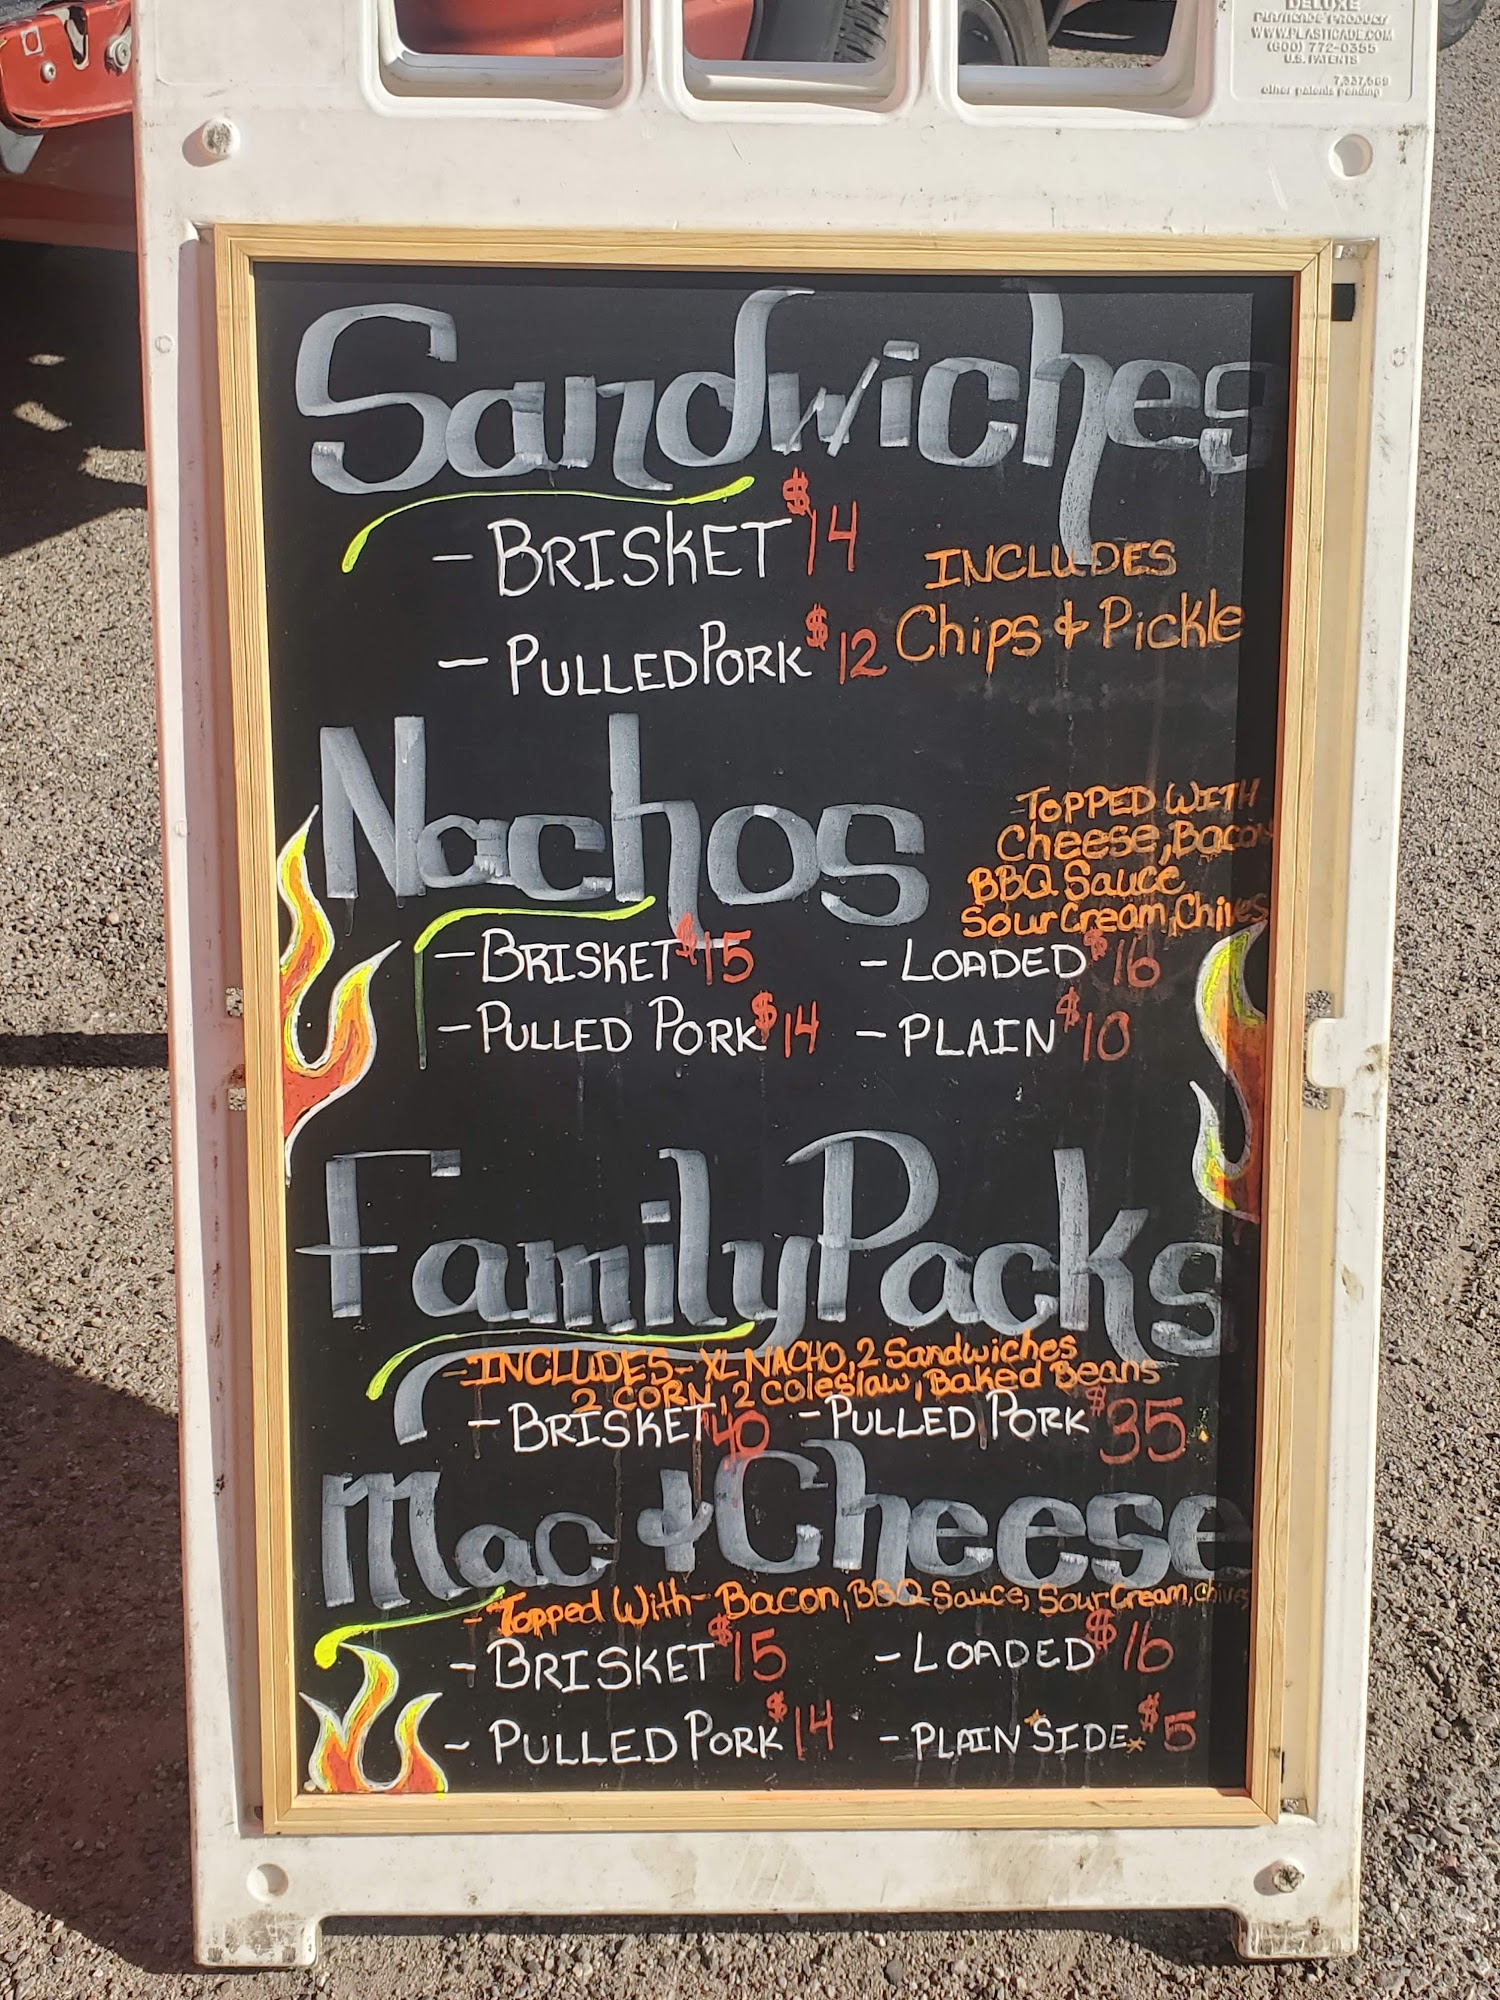 DELUXE
PLASTICADE PRODUCT
WWW.PLASTICADE.COM
(800) 772-0355
U.S. PATENTS
7,337,569
other patents pending
Sandwiches
- BRISKET $14
INCLUDES
- PULLED PORK $12
Chips & Pickle
Nachos
TOPPED WITH
Cheese, Bacon
BBQ Sauce
Sour Cream, Chives
- BRISKET $15
- LOADED $16
- PULLED PORK $14
- PLAIN $10
Family Packs
- INCLUDES - XL NACHO, 2 Sandwiches
2 CORN, 2 Coleslaw, Baked Beans
- BRISKET 40 - PULLED PORK $35
Mac & Cheese
- Topped With - Bacon, BBQ Sauce, Sour Cream, chives
- BRISKET $15
- LOADED $16
- PULLED PORK $14
- PLAIN *SIDE* $5